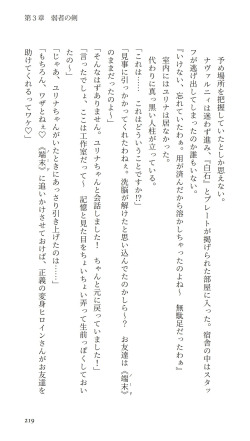 第３章　弱者の剣
予め場所を把握していたとしか思えない。
　ナヴァルニィは迷わず進み、「白石」とプレートが掲げられた部屋に入った。宿舎の中はスタッ
フが逃げ出してしまったのか誰もいない。
「いけない、忘れていたわぁ。用が済んだから溶かしちゃったのよね～　無駄足だったわぁ」
　室内にはユリナは居なかった。
　代わりに真っ黒い人柱が立っている。
「これは……　これはどういうことですか⁉」
「見事に引っかかってくれたわねぇ。洗脳が解けたと思い込んでたのかしら～？　お友達は《端末》
のままだったのよぉ」
「そんなはずありません！　ユリナちゃんと会話しました！　ちゃんと元に戻っていました！」
「言ったでしょ、ここは工作室だって～　記憶と見た目をちょいちょい弄って生前っぽくしておい
たの～」
「じゃあ、ユリナちゃんがいたときにあっさり引き上げたのは……」
「もちろん、ワザとねぇ♡　《端末》に追いかけさせておけば、正義の変身ヒロインさんがお友達を
助けてくれるってワケ♡」
219